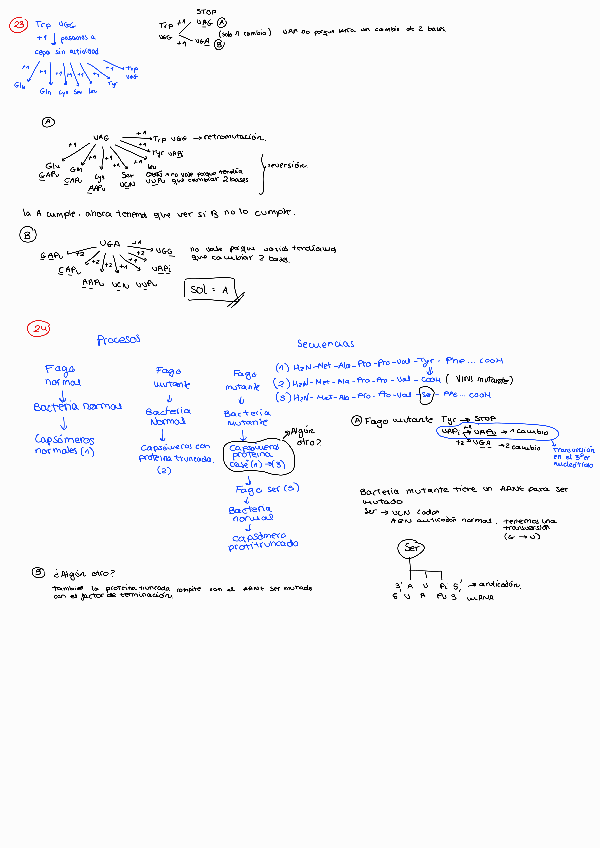 23 Trp UGG
+1 ↓ pasamos a
cepa sin actividad
+1 +1 +1 +1 +1 +1 +1
Glu Gln Cys Ser Leu Tyr Trp UGG
STOP
Trp +1 UAG A
UGG +1 UGA B
(solo 1 cambio) UAA no porque sería un cambio de 2 bases
A
UAG +1 Trp UGG → retromutación
+1 Tyr UAPi
Glu GAPu
Gln CAPu
Cys AAPu
Ser UCN
Leu
no vale porque tendría
UUPu que cambiar 2 bases
reversión
la A cumple, ahora tenemos que ver si B no lo cumple.
B
UGA +1 UGG
GAPu +2 +2 +2 +1 +1 +2 UAPi
CAPu
AAPu UCN UUPu
no vale porque varios tendríamos
que cambiar 2 bases
sol = A
24
Procesos
Secuencias
Fago normal
↓
Bacteria normal
↓
Capsómeros normales (1)
Fago mutante
↓
Bacteria Normal
↓
Capsómeros con proteína truncada (2)
Fago mutante
↓
Bacteria mutante
↓
Capsómeros proteína case (1) → (3)
Algún otro?
↓
Fago ser (3)
↓
Bacteria normal
↓
Capsómero prot truncado
(1) H2N-Met-Ala-Pro-Pro-Val-Tyr-Phe...COOH
(2) H2N-Met-Ala-Pro-Pro-Val-COOH (virus mutante)
(3) H2N-Met-Ala-Pro-Pro-Val-Ser-Phe...COOH
A Fago mutante Tyr → STOP
UAPi +1 → UAPu → 1 cambio
+2 → UGA → 2 cambio
transversión
en el 3er
nucleótido
Bacteria mutante tiene un ARNt para ser
mutado
Ser → UCN codon
AGN anticodon normal, tenemos una
transversión
(G → U)
Ser
3' A U Pi 5' → anticodón
5' U A Pu 3' mRNA
B ¿Algún otro?
También la proteína truncada compite con el ARNt ser mutado
con el factor de terminación